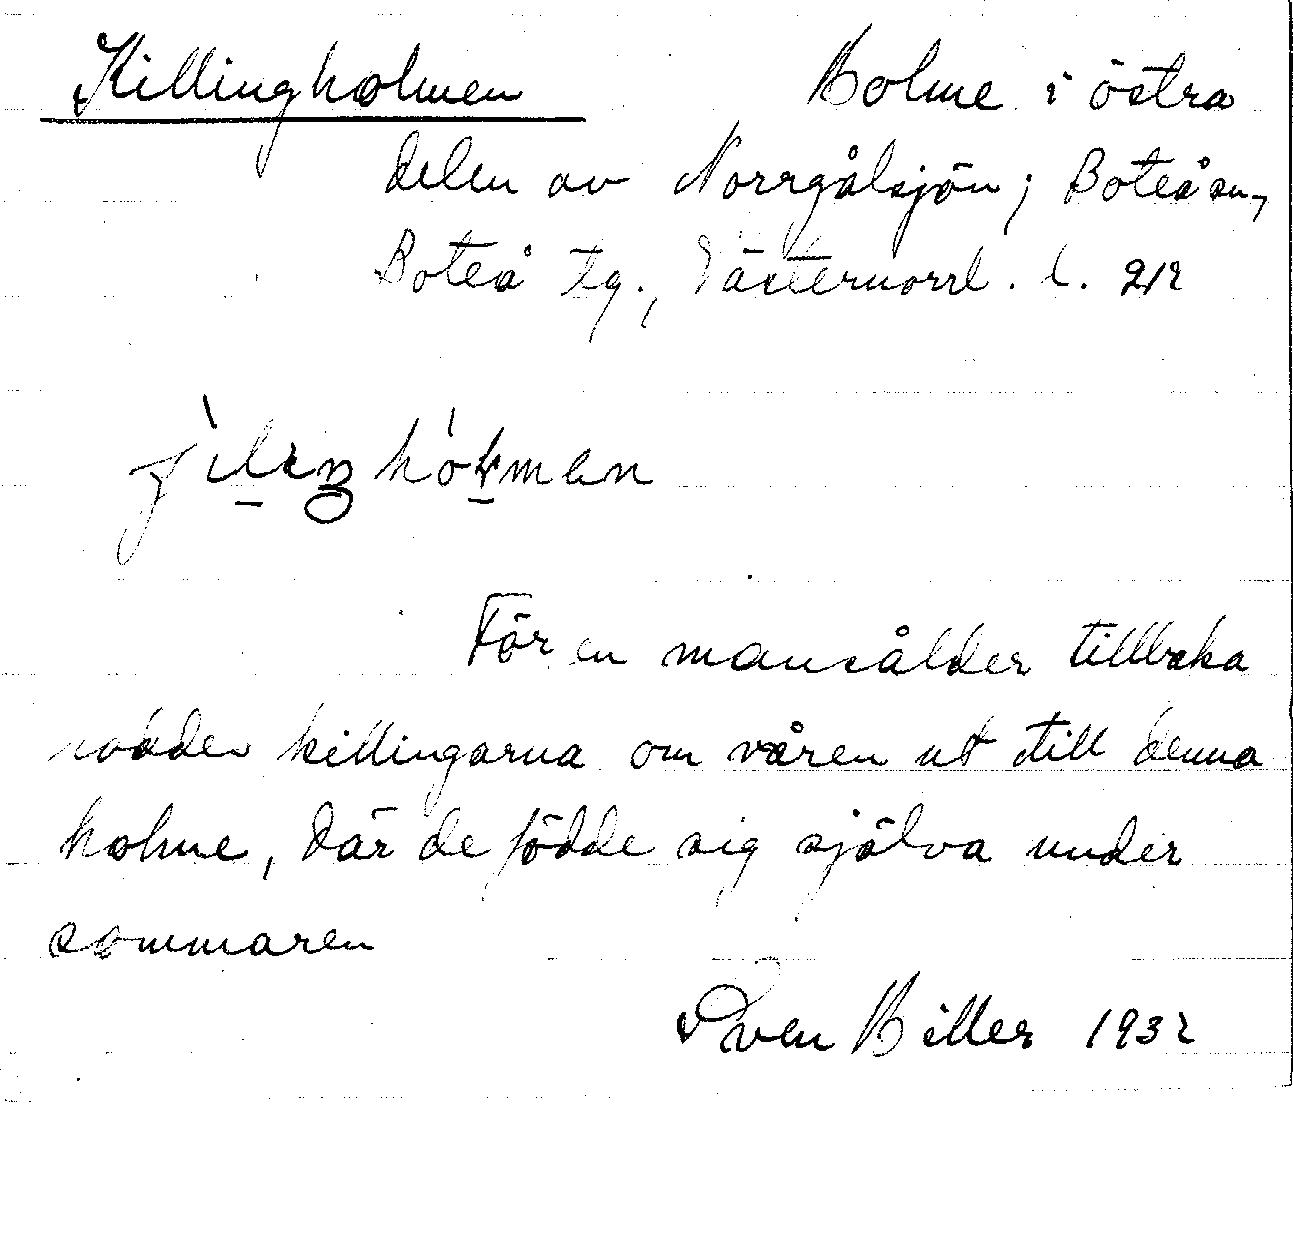 Killingholmen Holme i östra
delen av Norrgålsjön; Boteå sn,
Boteå tg., Västernorrl. l. 212
För en mansålder tillbaka
roddes killingarna om våren ut till denna
holme, där de födde sig själva under
sommaren
Sven Biller 1932